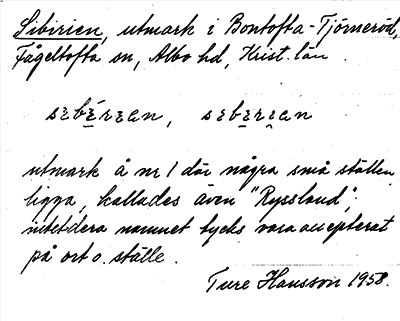 Sibirien, utmark i Bontofta-Tjörneröd,
Fågeltofta sn, Albo hd, Krist. län
sɛbérɛan, sɛberɛan
utmark å nr 1 där några små ställen
ligga, kallades även "Ryssland";
intetdera namnet tycks vara accepterat
på ort o. ställe.
Ture Hansson 1958.